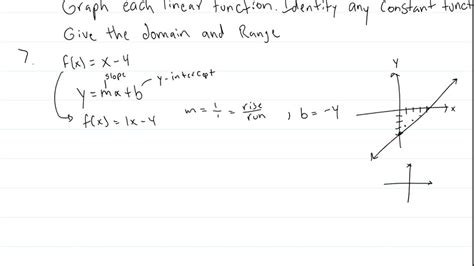 Graph each linear function. Identify any Constant funct
Give the domain and Range
7. f(x) = x - 4
slope
y-intercept
y = mx + b
f(x) = 1x - 4
m = 1/1 = rise/run , b = -4
Y
x